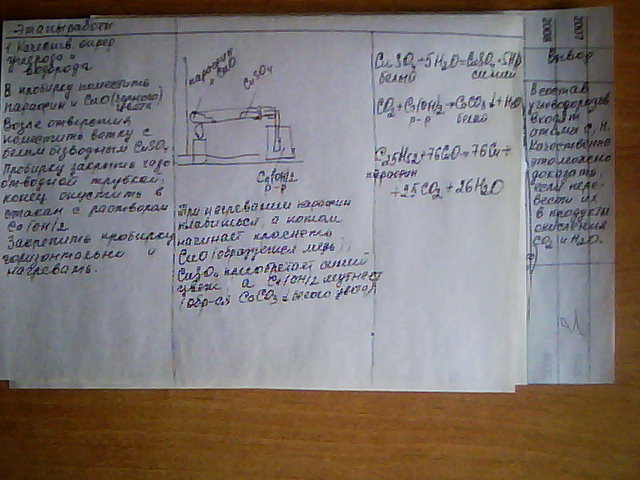 Этапы работы
1. Качествен. опред.
углерода и
водорода
В пробирку поместить
парафин и CuO (черного)
цвета
Возле отверстия
поместить ватку с
белым безводным CuSO₄
Пробирку закрыть газо
отводной трубкой,
конец опустить в
стакан с раствором
Ca(OH)2
Закрепить пробирку
горизонтально и
нагревать.
парафин
и CuO
CuSO₄
Ca(OH)2
р-р
При нагревании парафин
плавиться, а потом
начинает краснеть
CuO (образуется медь),
CuSO₄ приобретает синий
цвет, а Ca(OH)2 мутнеет
(обр-ся CaCO₃ белого цвета)
CuSO₄ + 5H₂O = CuSO₄·5H₂O
белый синий
CO₂ + Ca(OH)₂ → CaCO₃↓ + H₂O
р-р белый
C₂₅H₅₂ + 76CuO → 76Cu +
парафин
+ 25CO₂ + 26H₂O
Вывод
В состав
углеводородов
входят
атомы C, H.
Качественно
это можно
доказать,
если пере-
вести их
в продукты
окисления
CO₂ и H₂O.
2006
2007